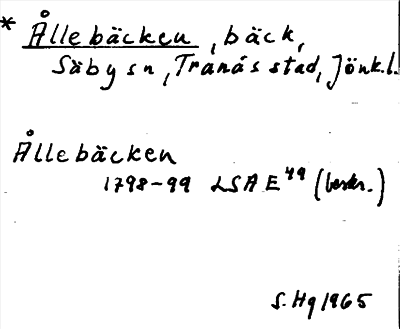 * Ållebäcken, bäck,
Säby sn, Tranås stad, Jönk.l.
Ållebäcken
1798-99 LSA E49 (beskr.)
S. Hg 1965